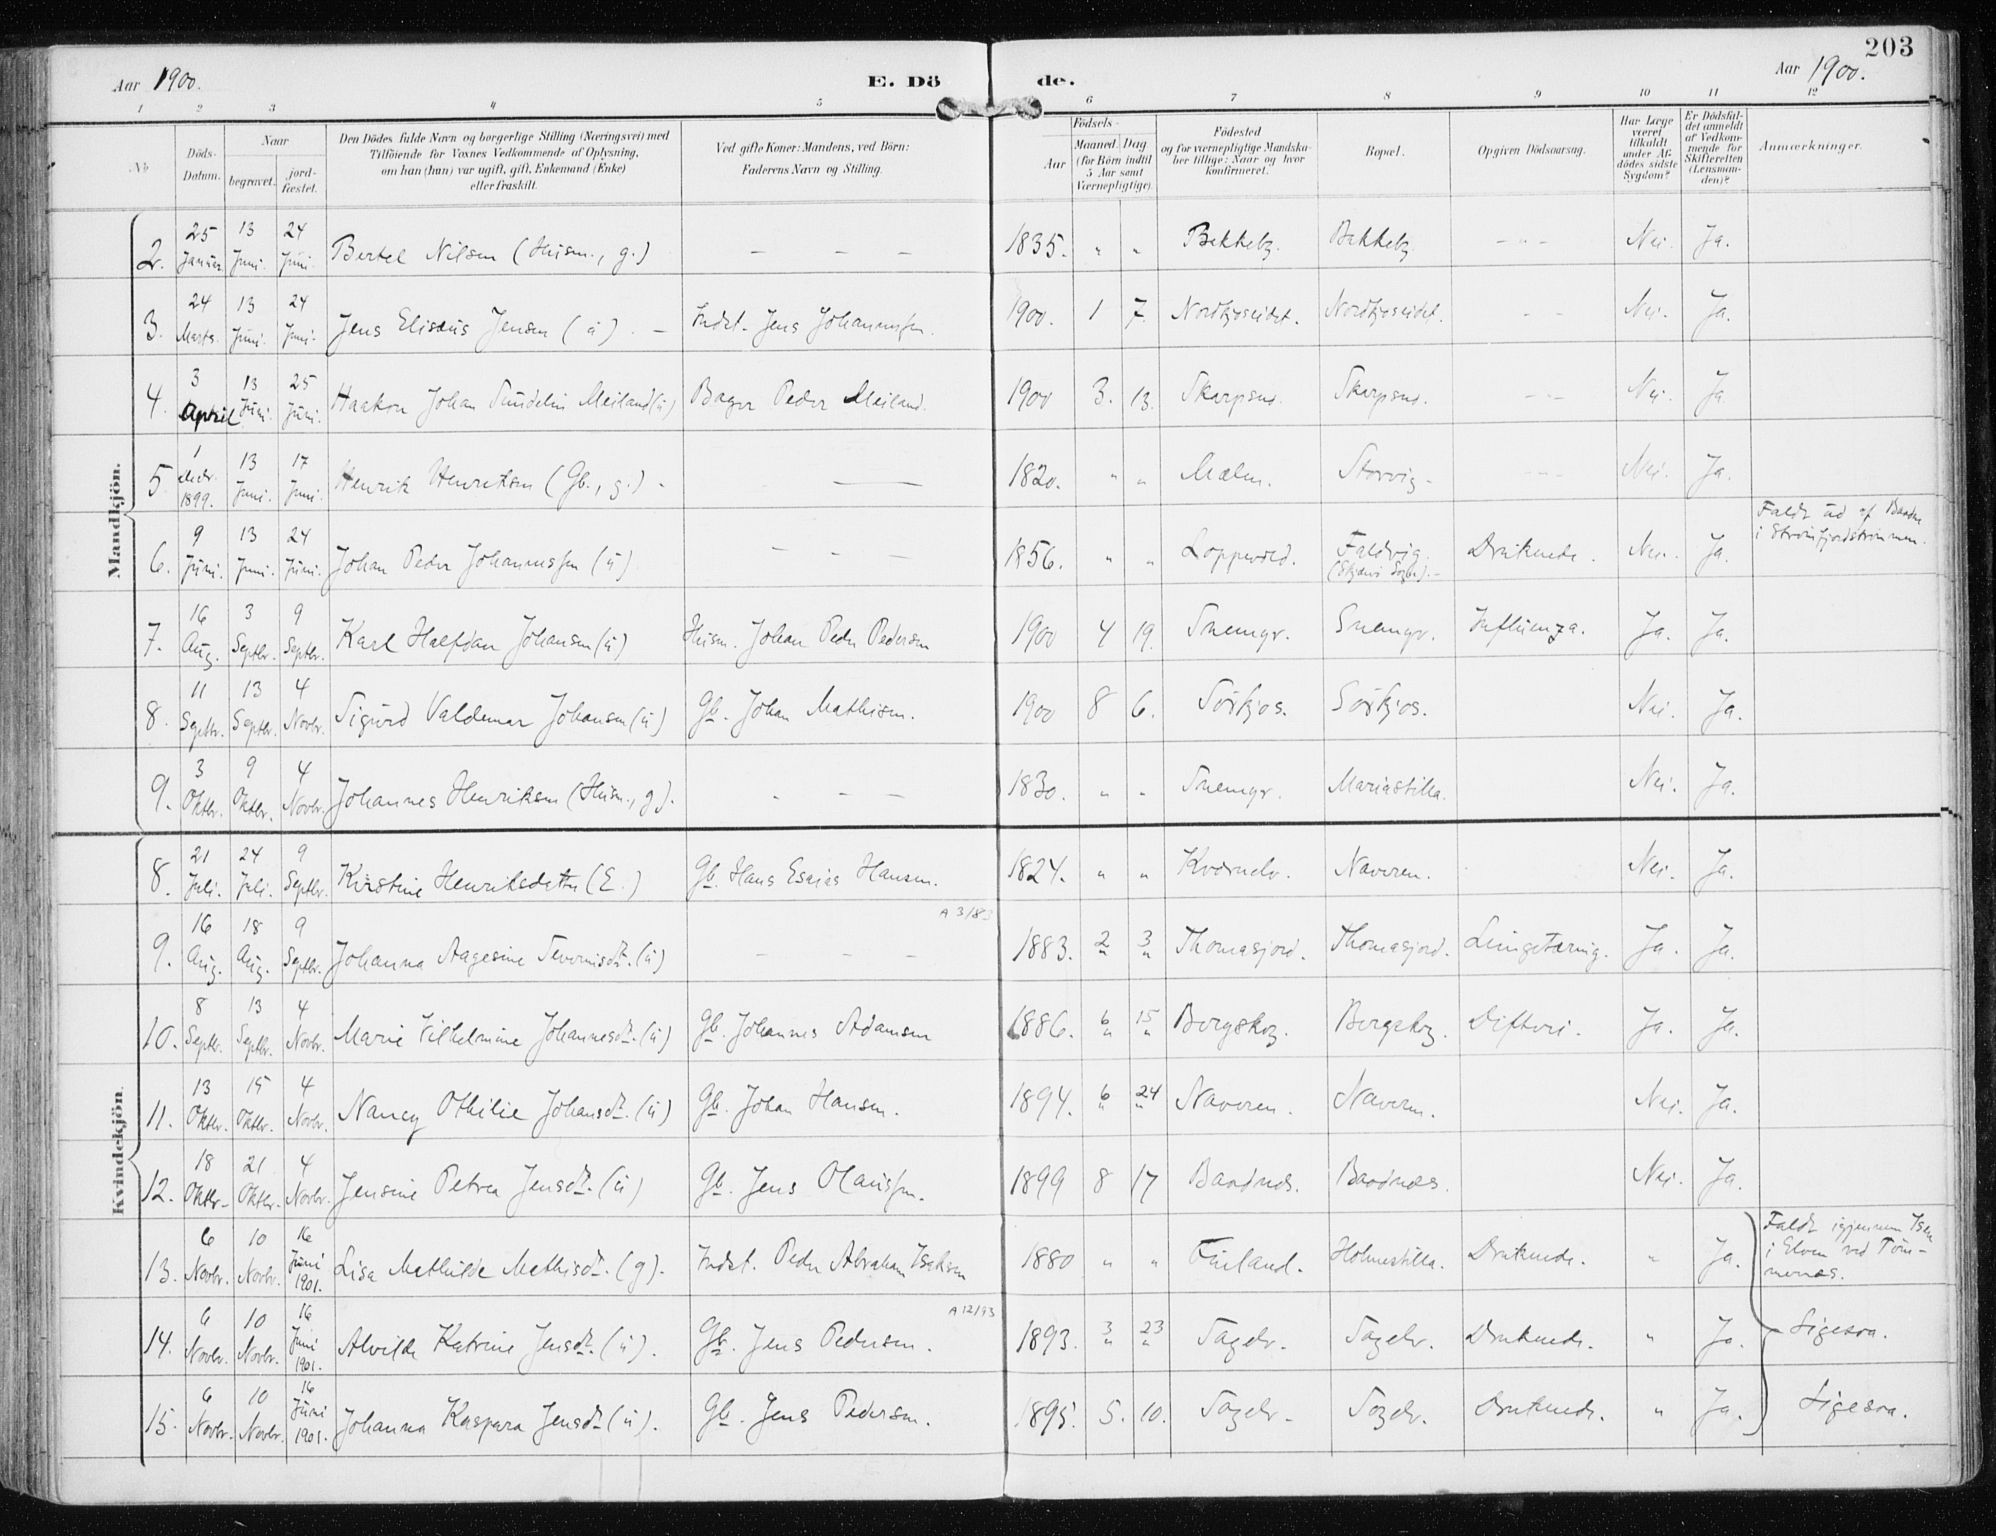 203
Aar 1900. E. Dö de. Aar 1900.
1 2 3 4 5 6 7 8 9 10 11 12
No
Döds-Datum.
Naar
begravet.
jord-fæstet.
Den Dödes fulde Navn og borgerlige Stilling (Næringsvei) med
Tilföiende for Voxnes Vedkommende af Oplysning,
om han (hun) var ugift, gift, Enkemand (Enke)
eller fraskilt.
Ved gifte Koner: Mandens, ved Börn:
Faderens Navn og Stilling.
Födsels-
Aar
Maaned. Dag
(for Börn indtil
5 Aar samt
Værnepligtige).
Födested
og for værnepligtige Mandska-
ber tillige: Naar og hvor
konfirmeret.
Bopæl.
Opgiven Dödsaarsag.
Har Læge
været
tilkaldt
under Af-
dödes sidste
Sygdom?
Er Dödsfal-
det anmeldt
af Vedkom-
mende for
Skifteretten
(Lensman-
den)?
Anmærkninger.
Mandkjön.
2. 25 Januar. 13 Juni. 24 Juni. Bertel Nilsen (Husm., g.) – – – 1835. " " Bekkeby Bakkeby – " – Nei. Ja.
3. 24 Marts. 13 Juni. 24 Juni. Jens Elisæus Jensen (u) – Indst. Jens Johannessen. 1900. 1 7. Nordkjoseidet. Nordkjoseidet. – – Nei. Ja.
4. 3 April 13 Juni. 25 Juni. Haakon Johan Meiland (u) Bager Peder Meiland. 1900 3. 13. Skarpsno. Skarpsno. – – Nei. Ja.
5. 1 decbr. 1899. 13 Juni. 17 Juni. Henrik Henriksen (Gb., g.) – — — 1820. " " Mælen. Storvig – – – Nei. Ja.
6. 9 Juni. 13 Juni. 24 Juni. Johan Peder Johannessen (u) – – – 1856. " " Loppevold. Faldvig. (Skjærvø Sogn). – Druknede. Nei. Ja. Faldt ud af Baaden i Straumfjordstrømmen.
7. 16 Aug. 3 Septbr. 9 Septbr. Karl Halfdan Johansen (u) Husm. Johan Peder Pedersen 1900 4 19. Snemyr. Snemyr. Influenza. Ja. Ja.
8. 11 Septbr. 13 Septbr. 4 Novbr. Sigurd Valdemar Johansen (u) Gb. Johan Mathisen. 1900 8 6. Sørkjos. Sørkjos. Nei. Ja.
9. 3 Oktbr. 9 Oktbr. 4 Novbr. Johannes Henriksen (Husm., g). – – – 1830. " " Snemyr. Mariastilla. Nei. Ja.
Kvindekjön.
8. 21 Juli. 24 Juli. 9 Septbr. Kirstine Henriksdatter (E.) Gb. Hans Esaias Hansen. 1824. " " Kværnelv. Naveren. Nei. Ja.
A 3/83
9. 16 Aug. 18 Aug. 9 Septbr. Johanna Aagesine (u) – – – 1883. 2 3 Thomasjord. Thomasjord. Lungetæring. Ja. Ja.
10. 8 Septbr. 13 Septbr. 4 Novbr. Marie Vilhelmine Johannesdt. (u) Gb. Johannes Adamsen 1886. 6 15 Bergskog. Bergskog. Difteri. Ja. Ja.
11. 13 Oktbr. 15 Oktbr. 4 Novbr. Nancy Othilie Johansdt. (u) Gb. Johan Hansen. 1894. 6 24 Naveren. Naveren. Nei. Ja.
12. 18 Oktbr. 21 Oktbr. 4 Novbr. Jensine Petrea Jensdt. (u) Gb. Jens Olaussen. 1899 8 17 Baardnæs. Baardnæs. Nei. Ja.
13. 6 Novbr. 10 Novbr. 16 Juni 1901. Lisa Mathilde Mathisdt. (g). Indst. Peder Abraham Isaksen 1880 " " Finland. Holmestilla. Druknede. " Ja. Faldt igjennem Isen i Elven ved Tømmernes.
A 12/93
14. 6 Novbr. 10 Novbr. 16 Juni 1901. Alvilde Katrine Jensdt. (u). Gb. Jens Pedersen. 1893. 3 23 Tagelv. Tagelv. Druknede. " Ja. Ligesaa.
15. 6 Novbr. 10 Novbr. 16 Juni 1901. Johanna Kaspara Jensdt (u). Gb. Jens Pedersen. 1895. 5. 10. Tagelv. Tagelv. Druknede. " Ja. Ligesaa.